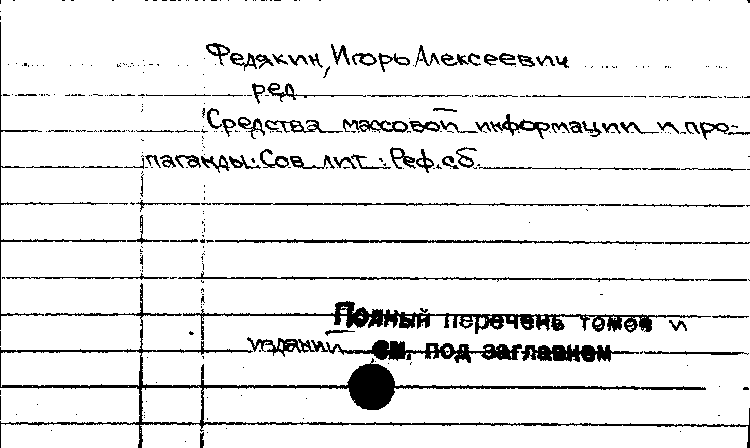 Федякин, Игорь Алексеевич
ред.
Средства массовой информации и про-
паганды: Сов. лит.: Реф. сб.
Полный перечень томов и
изданий см. под заглавием